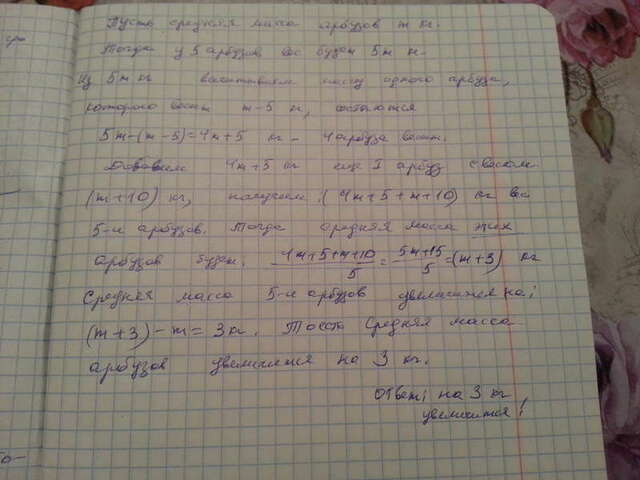 Пусть средняя масса арбузов m кг.
Тогда у 5 арбузов вес будет 5m кг.
Из 5m кг вычитаем массу одного арбуза,
которого весит m-5 кг, остаются
5m-(m-5)=4m+5 кг - 4 арбуза весит.
Добавим 4m+5 кг еще 1 арбуз с весом
(m+10) кг, получим (4m+5+m+10) кг вес
5-и арбузов. Тогда средняя масса этих
арбузов будет: (4m+5+m+10)/5 = (5m+15)/5 = (m+3) кг
Средняя масса 5-и арбузов увеличится на:
(m+3)-m=3кг. То есть средняя масса
арбузов увеличится на 3 кг.
Ответ: на 3 кг
увеличится!